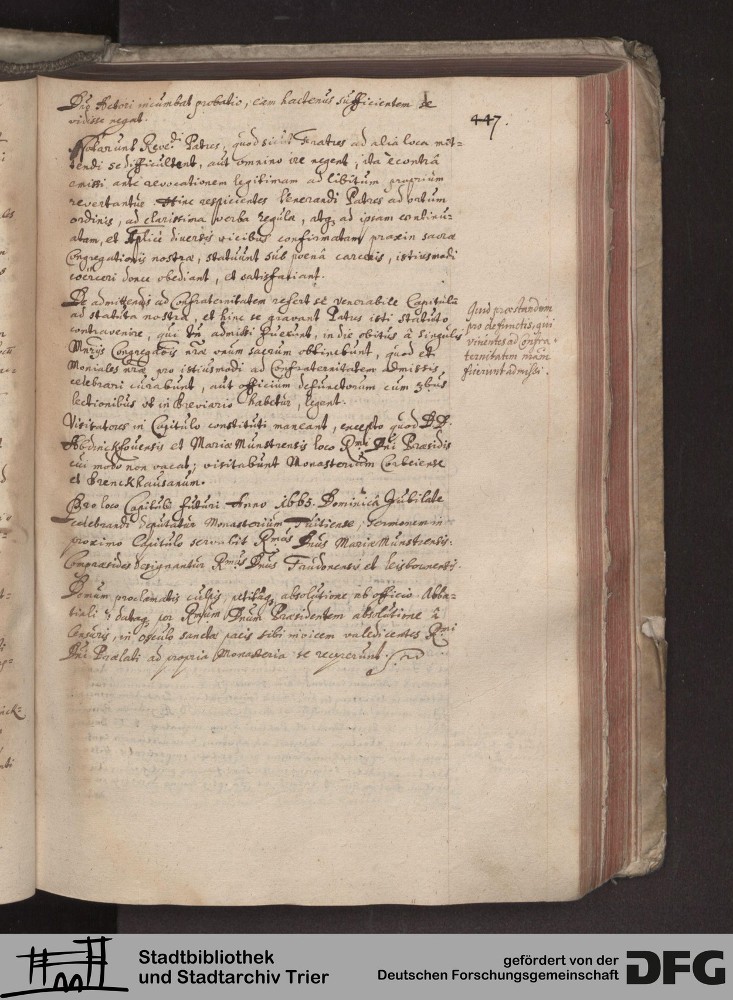 447.
Dnō Actori incumbat probatio, eam hactenus sufficientem se
vidisse negat.
Notarunt Revdi Patres, quod sicut Fratres ad alia loca mit-
tendi se difficultent, aut omnino ire negent, ita è contrà
emissi, ante revocationem legitimam ad libitum proprium
revertantur. Hinc respicientes Venerandi Patres ad votum
ordinis, ad clarissima verba regulæ, atq ad ipsam continu-
atam, et diversis vicibus confirmatam praxin sacræ
Congregationis nostræ, statuunt sub pœnâ carceris, istiusmodi
coerceri donec obediant, et satisfaciant.
De admittendis ad Confraternitatem refert se Venerabile Capitulū
ad statuta nostra, et hinc se gravant Patres isti statuto
contravenire, qui tn̄ admissi fuerunt, in die obitus â singulis
Mrijs Congregatōis nræ unum sacrum obtinebunt, quod et
Moniales nræ pro istiusmodi ad Confraternitatem admissis
celebrari curabunt, aut officium defunctorum cum 3bus
lectionibus vt in Breviario habetur, legent.
Quid præstandum
pro defunctis, qui
viventes ad Confra-
ternitatem nr̄am
fuerunt admissi.
Visitatores in Capitulo constituti maneant, excepto quod DD.
Abdinckhouensis et Mariæ Munstrensis loco Rmi Dni Præsidis
cui modo non vacat, visitabunt Monasterium Corbeiense
et Brenckhausanum.
Pro loco Capituli futuri Anno 1665. Dominicâ Jubilate
celebrandi deputatur Monasterium Tuitiense, sermonem in
proximo Capitulo servabit Rmus Dnus Mariæ Munstrensis.
Compræsides designantur Rmus Dnus et leisbornensis.
Demum proclamatis culpis, petitâq absolutione ab officio Abba-
tiali datâq per Rmum Dnum Præsidentem absolutione â
Censuris, in osculo sanctæ pacis sibi invicem valedicentes Rmi
Dni Prælati ad propria Monasteria se receperunt.
Stadtbibliothek
und Stadtarchiv Trier
gefördert von der
Deutschen Forschungsgemeinschaft
DFG